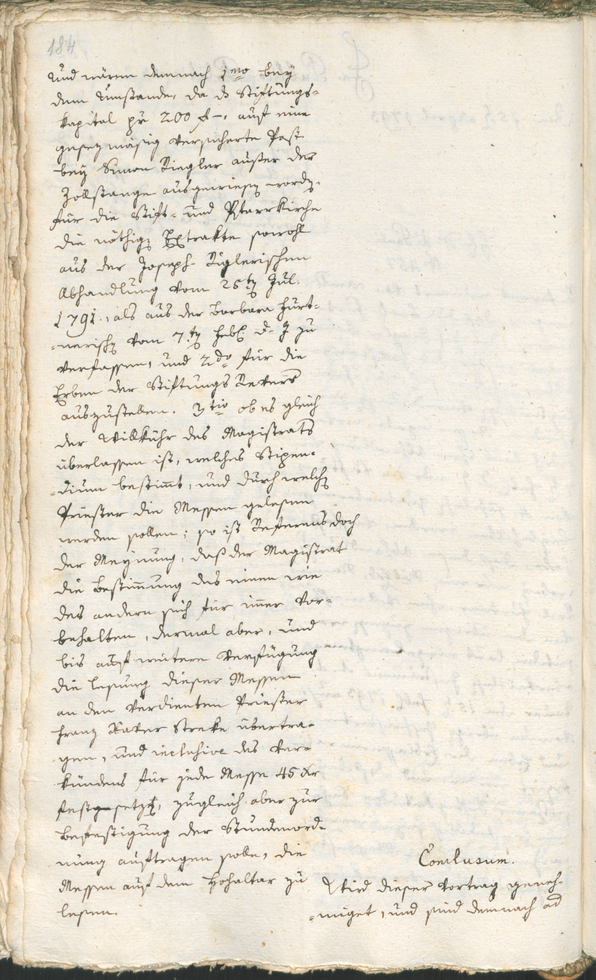 184
Und wären demnach 1mo bey
dem Umstande, da ds Stiftungs-
kapital pr 200 f –, auf eine
gesezmäsig versicherte Post
bey Simon Riegler ausser der
Zollstange ausgewiesen worden
für die Stift- und Pfarrkirche
die nöthige Extrakte sowohl
aus der Joseph Riglerischen
Abhandlung vom 25ty Jul.
1791., als aus der Barbara Hürt-
nerisch vom 7.ty d. J zu
verfassen, und 2do für die
Erben der Stiftungs Revers
auszustellen. 3tio ob es gleich
der Willkühr des Magistrats
überlassen ist, welches Stipen-
dium bestimt, und durch welche
Priester die Messen gelesen
werden sollen; so ist Referens doch
der Meynung, daß der Magistrat
die Bestimung des einen wie
des andern sich für imer vor-
behalten, dermal aber, und
bis auf weitere Verfügung
die Lesung dieser Messen
an den verdienten Priester
Franz Xaver Streke übertra-
gen, und inclusive des Ver-
kündens für jede Messe 45 Xr
festgesetzt, zugleich aber zur
Befestigung der Stundenord-
nung auftragen solle, die
Messen auf dem Hohaltar zu
lesen.
Conclusum.
Wird dieser Vortrag geneh-
miget, und sind demnach ad